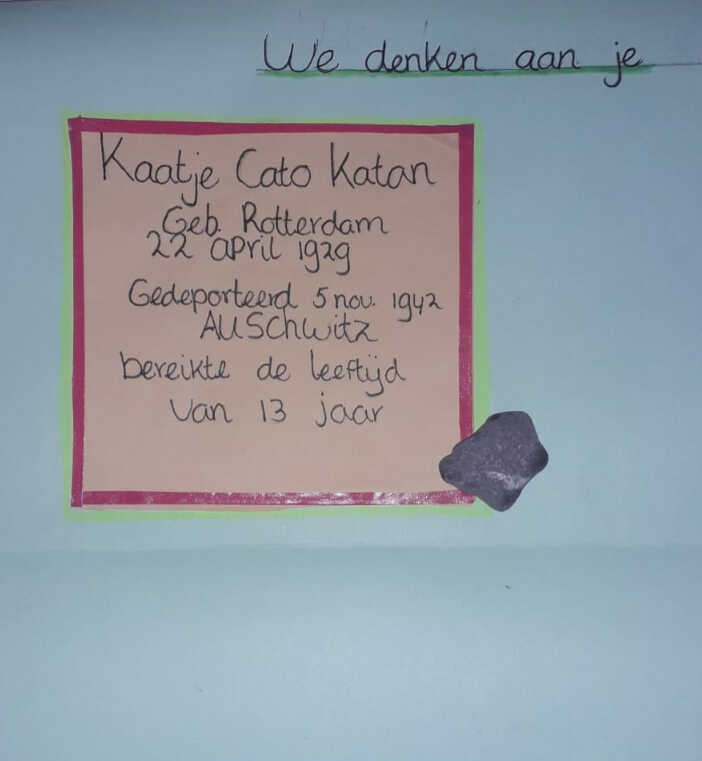 We denken aan je
Kaatje Cato Katan
Geb. Rotterdam
22 april 1929
Gedeporteerd 5 nov. 1942
Auschwitz
bereikte de leeftijd
van 13 jaar